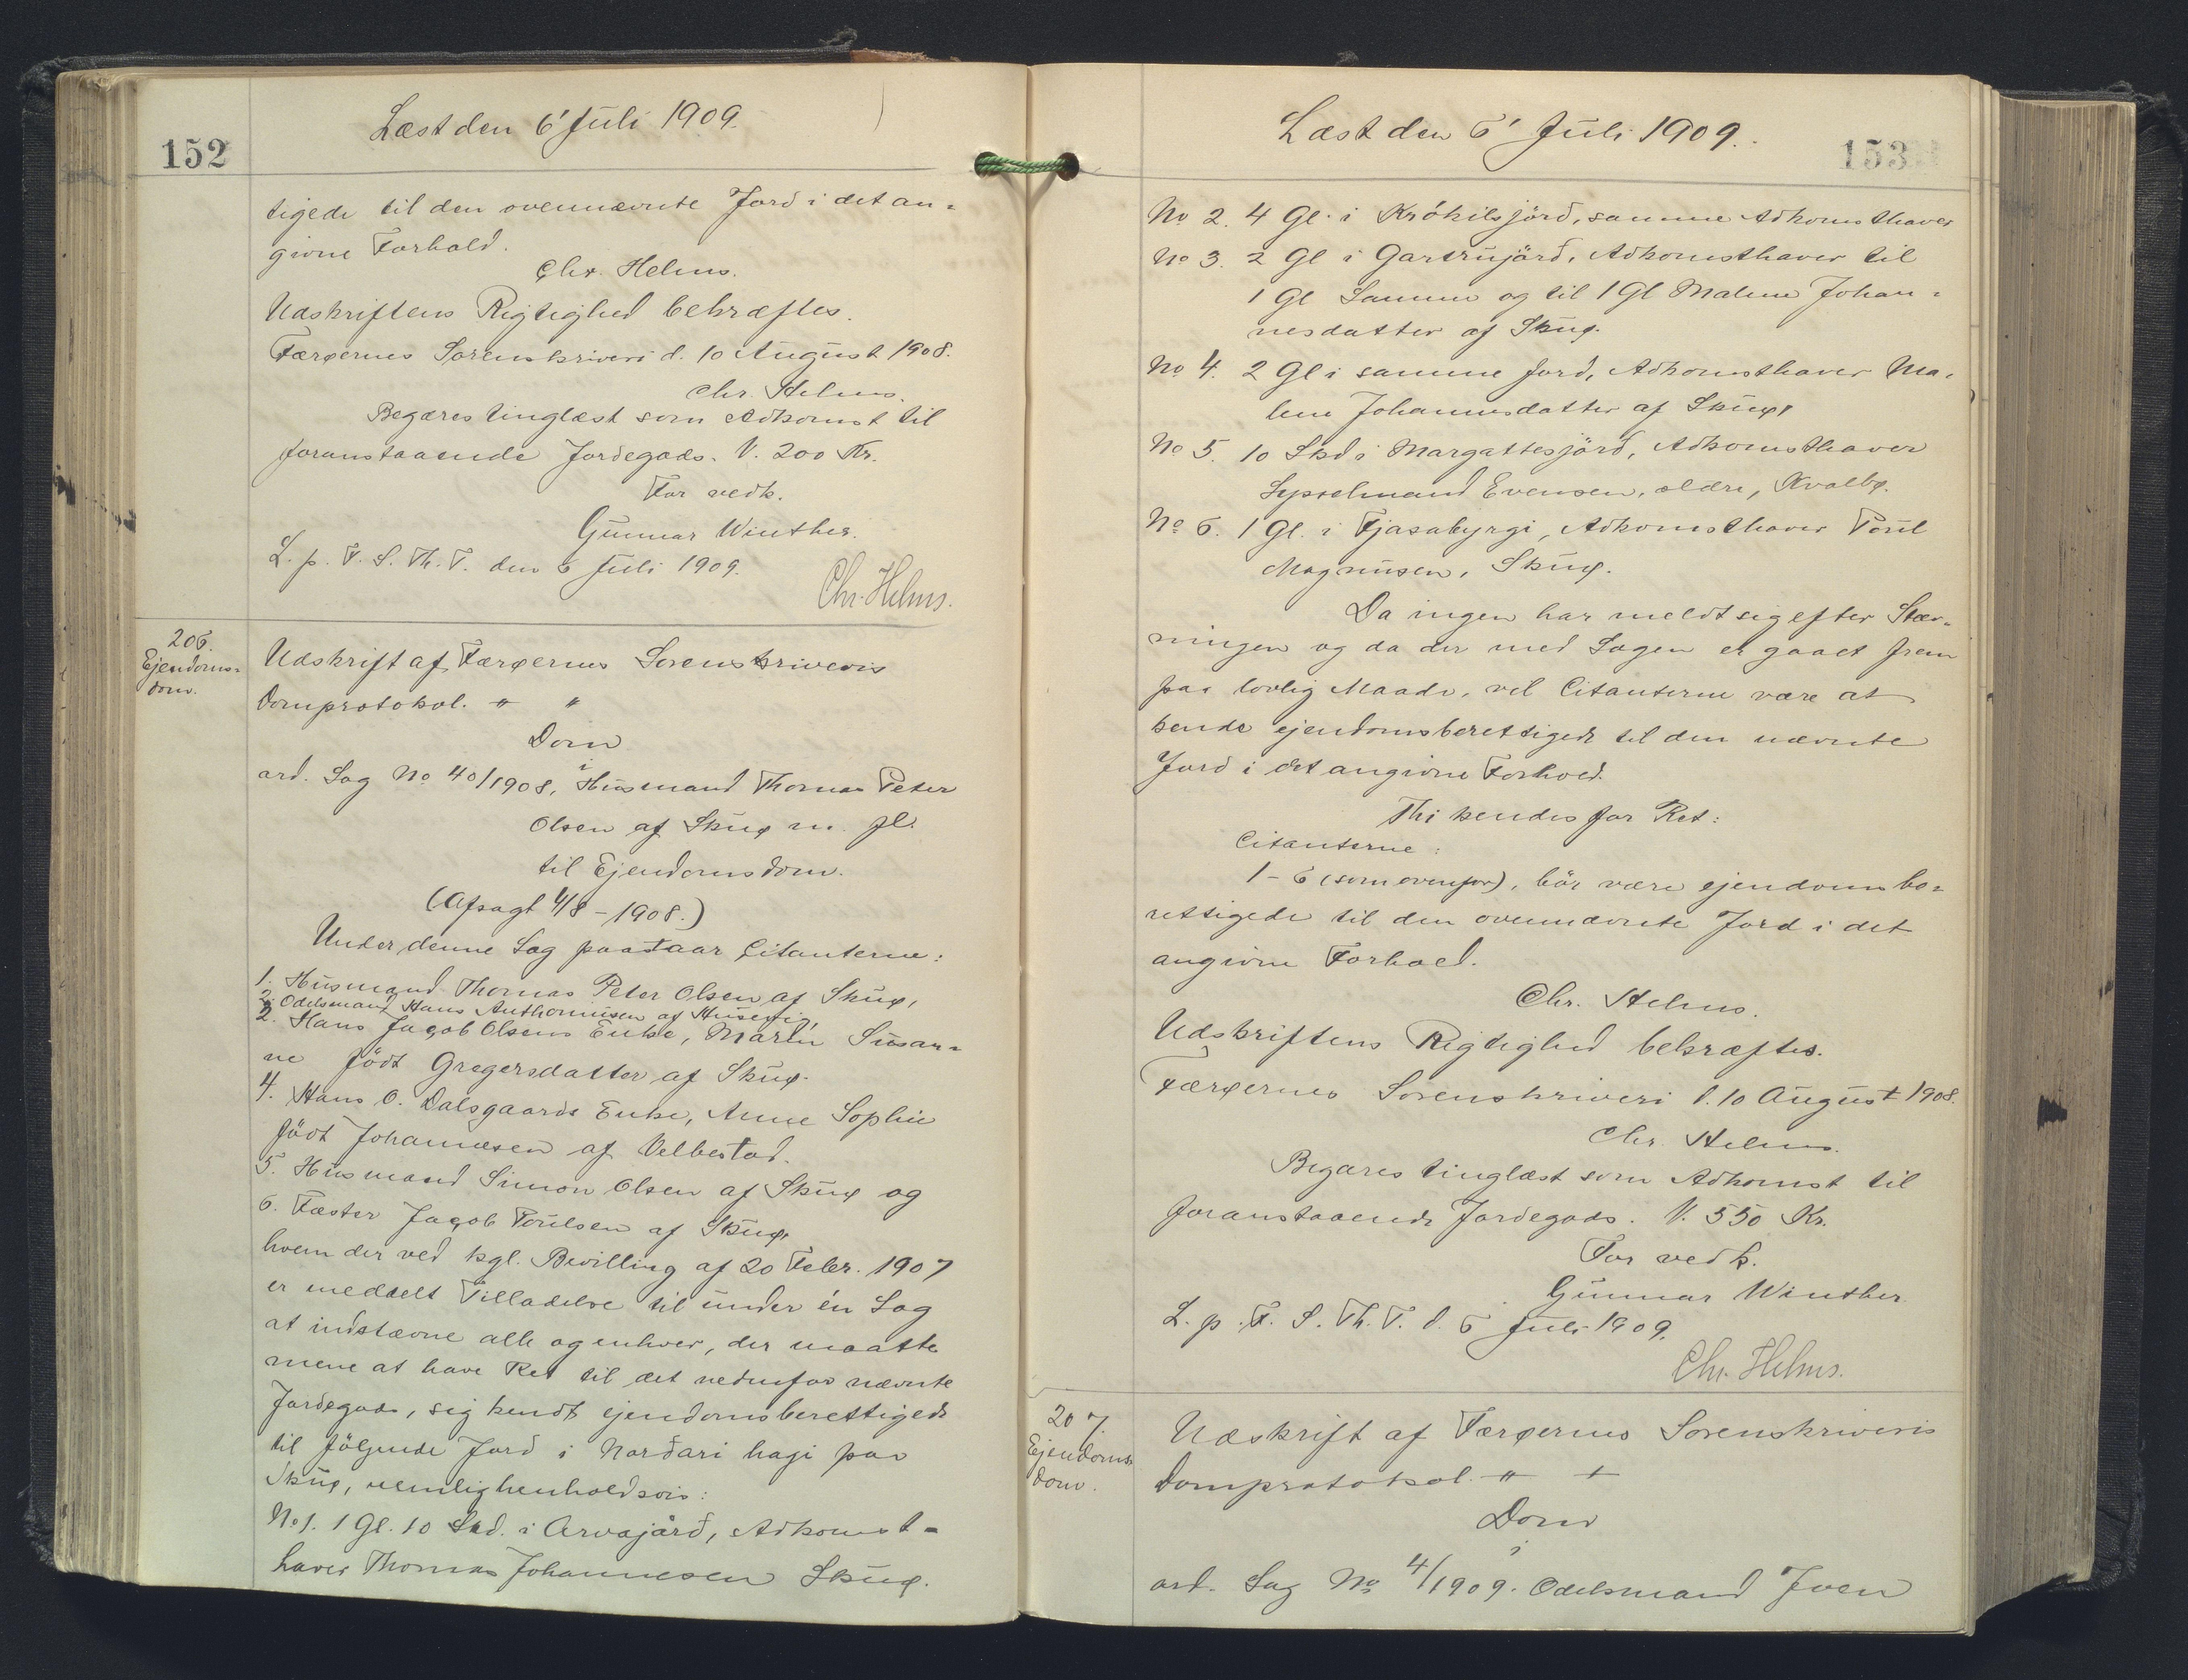 152
Læst den 6' Juli 1909.
tigede til den ovennævnte Jord i det an-
givne Forhold.
Chr. Helms.
Udskriftens Rigtighed bekræftes.
Færøernes Sorenskriveri d. 10 August 1908.
Chr. Helms.
Begæres tinglæst som Adkomst til
foranstaaende Jordegods. V. 200 Kr.
For vedk.
Gunnar Winther.
L. p. F. S. Th. T. den 6 Juli 1909.
Chr. Helms.
206.
Ejendoms-
dom.
Udskrift af Færøernes Sorenskriveris
Domprotokol. " "
Dom
i
ord. Sag No 40/1908, Husmand Thomas Peter
Olsen af Skuø m. fl.
til Ejendomsdom.
(Afsagt 4/8 - 1908.)
Under denne Sag paastaar Citanterne:
1. Husmand Thomas Peter Olsen af Skuø,
2. Odelsmand Hans Anthoniusen af Husevig,
2. Hans Jacob Olsens Enke, Marin Susan-
ne födt Gregersdatter af Skuø.
4. Hans O. Dalsgaards Enke, Anne Sophie
födt Johannesen af Velbestad.
5. Husmand Simon Olsen af Skuø og
6. Fæster Jacob Poulsen af Skuø,
hvem der ved kgl. Bevilling af 20 Febr. 1907
er meddelt Tilladelse til under én Sag
at indstævne alle og enhver, der maatte
mene at have Ret til det nedenfor nævnte
Jordegods, sig kendt ejendomsberettigede
til fölgende Jord i Norðari hagi paa
Skuø, nemlig henholdsvis:
No 1. 1 Gl. 10 Skd. i Arvajörð, Adkomst-
haver Thomas Johannesen Skuø.
153
Læst den 6' Juli 1909.
No 2. 4 Gl. i Krókilsjörð, samme Adkomsthaver
No 3. 2 Gl i Gartnujörð, Adkomsthaver til
1 Gl Samme og til 1 Gl Malene Johan-
nesdatter af Skuø.
No 4. 2 Gl i samme Jord, Adkomsthaver Ma-
lene Johannesdatter af Skuø,
No 5. 10 Skd i Margattesjörð, Adkomsthaver
Sysselmand Evensen, ældre, Kvalbø.
No 6. 1 Gl. i Fjasabyrgi, Adkomsthaver Poul
Magnusen, Skuø.
Da ingen har meldt sig efter Stæv-
ningen og da der med Sagen er gaaet frem
paa lovlig Maade, vil Citanterne være at
kende ejendomsberettigede til den nævnte
Jord i det angivne Forhold.
Thi kendes for Ret:
Citanterne:
1 - 6 (som ovenfor), bör være ejendomsbe-
rettigede til den ovennævnte Jord i det
angivne Forhold.
Chr. Helms.
Udskriftens Rigtighed bekræftes.
Færøernes Sorenskriveri d. 10 August 1908.
Chr. Helms.
Begæres tinglæst som Adkomst til
foranstaaende Jordegods. V. 550 Kr.
For vedk.
Gunnar Winther
L. p. F. S. Th. T. d. 6 Juli 1909.
Chr. Helms.
207.
Ejendoms-
dom.
Udskrift af Færøernes Sorenskriveris
Domprotokol. " "
Dom
i
ord. Sag No 4/1909. Odelsmand Joen